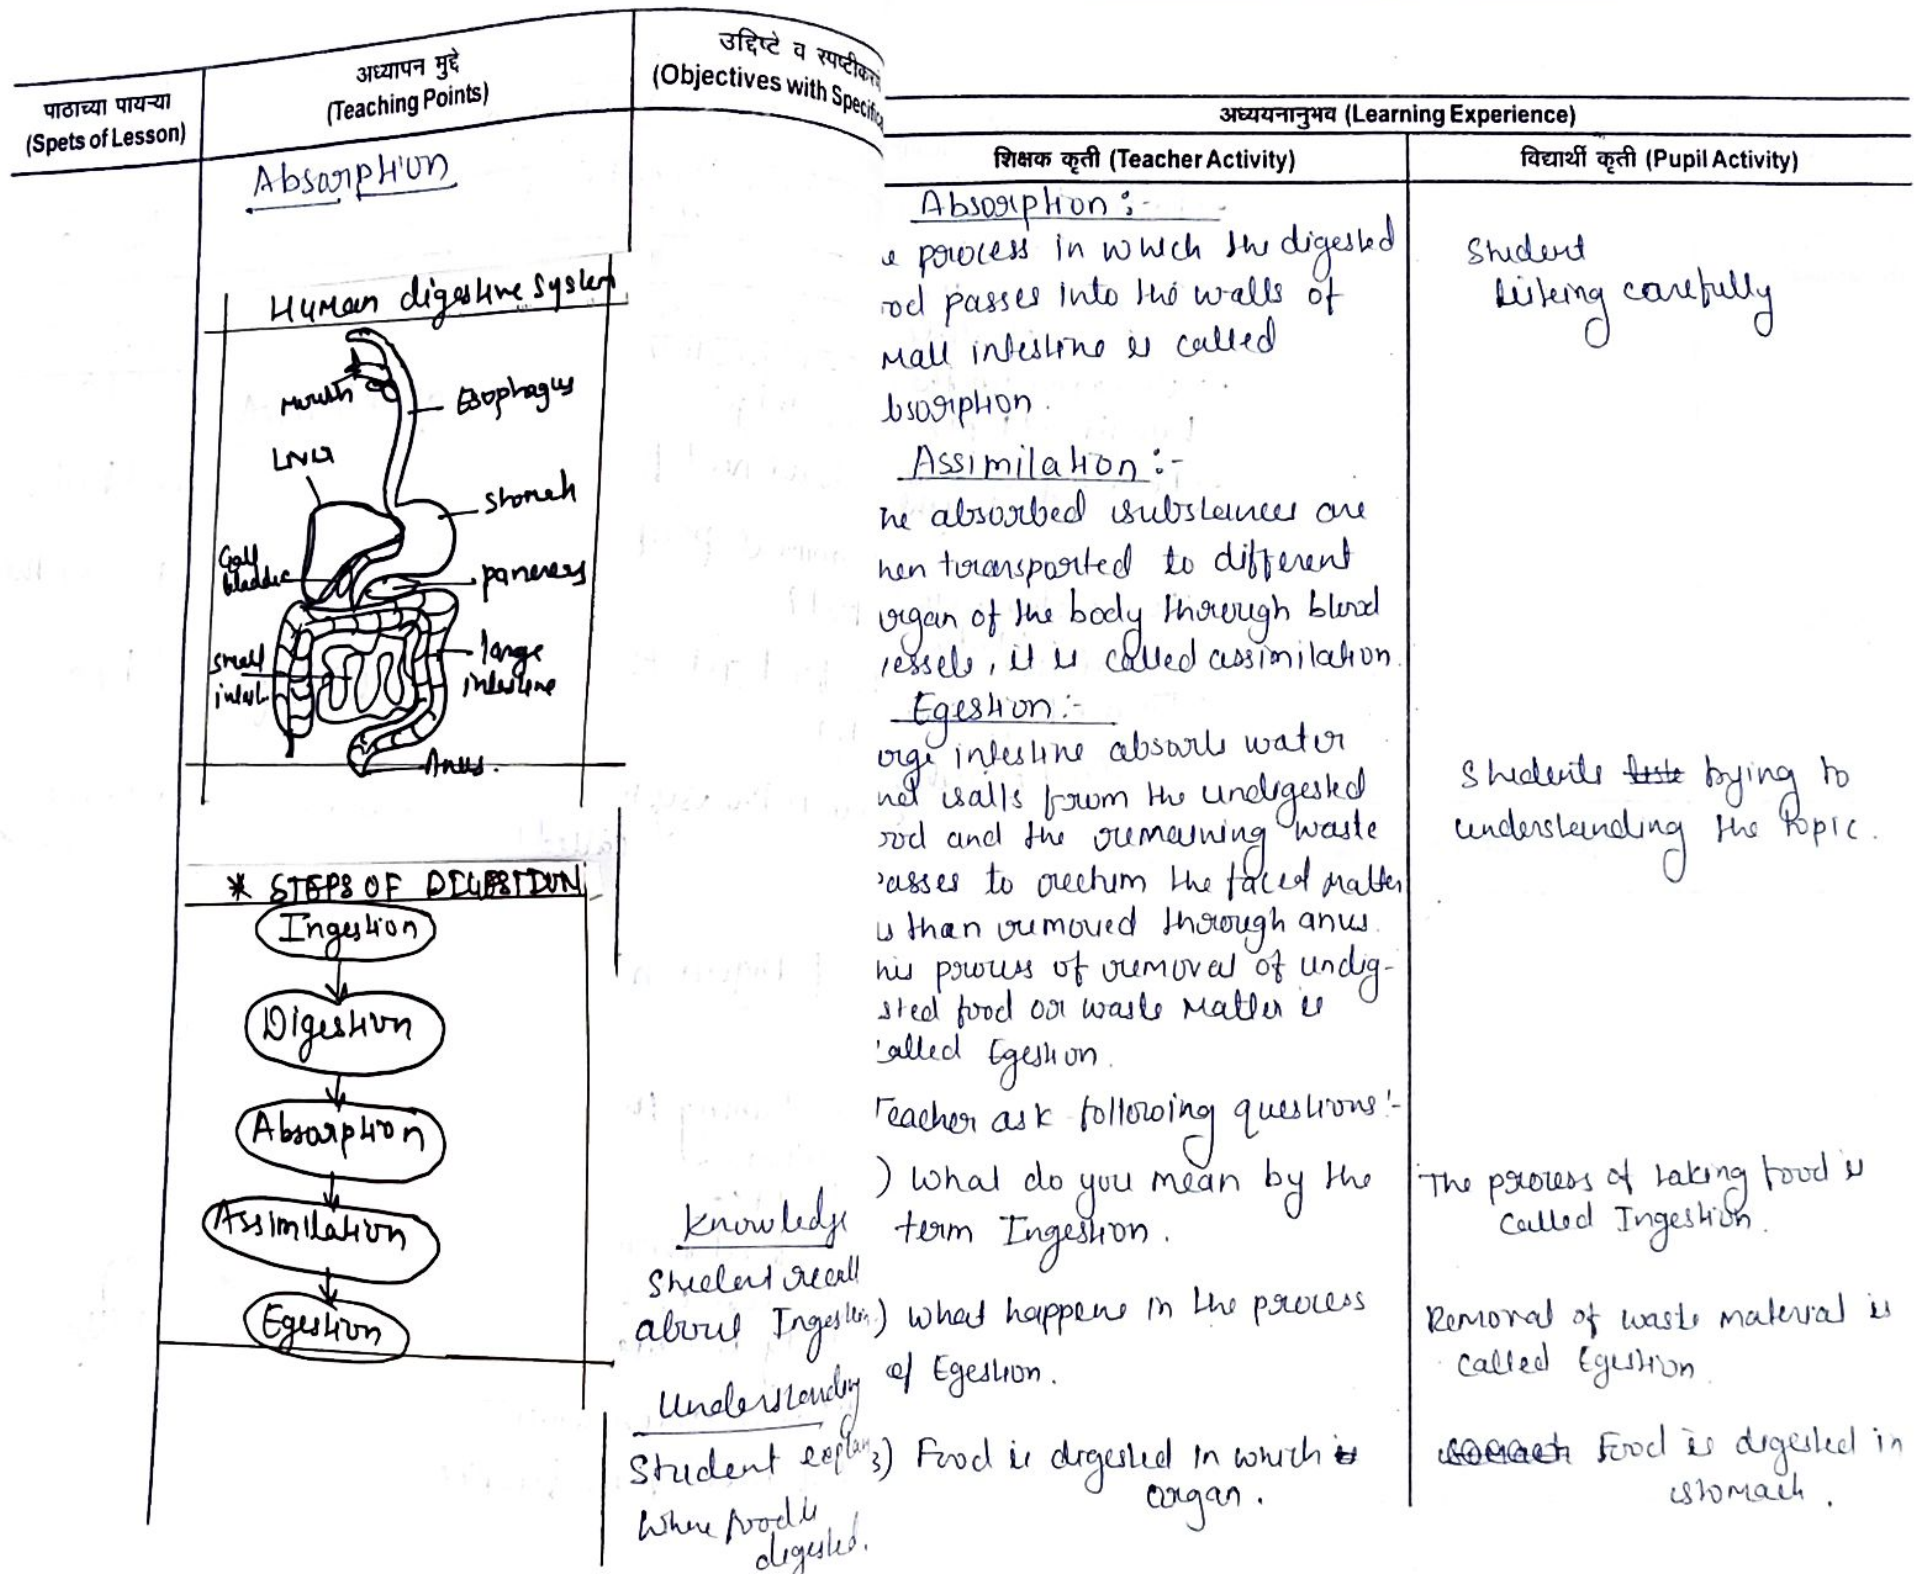 पाठाच्या पायऱ्या
(Spets of Lesson)
अध्यापन मुद्दे
(Teaching Points)
उद्दिष्टे व स्पष्टीकरणे
(Objectives with Specific
Absorption
Human digestive System
Mouth
Esophagus
Liver
stomach
Gall
bladder
pancreas
small
intest.
large
intestine
Anus.
* STEPS OF DIGESTION
Ingestion
Digestion
Absorption
Assimilation
Egestion
Knowledge
Student recall
about Ingestion
Understanding
Student explan
where food is
digested.
अध्ययनानुभव (Learning Experience)
शिक्षक कृती (Teacher Activity)
विद्यार्थी कृती (Pupil Activity)
Absorption :-
e process in which the digested
ood passes into the walls of
mall intestine is called
bsorption.
Assimilation :-
he absorbed substances are
hen transported to different
organ of the body through blood
vessels, it is called assimilation.
Egestion :-
arge intestine absorb water
nd salts from the undigested
ood and the remaining waste
passes to rectum the faced matter
is than removed through anus.
his process of removal of undig-
sted food or waste matter is
called Egestion.
Teacher ask following questions :-
) What do you mean by the
term Ingestion.
) What happens in the process
of Egestion.
3) Food is digested in which
organ.
Student
listing carefully
Students trying to
understanding the topic.
The process of taking food is
called Ingestion.
Removal of waste material is
called Egestion
Food is digested in
stomach.